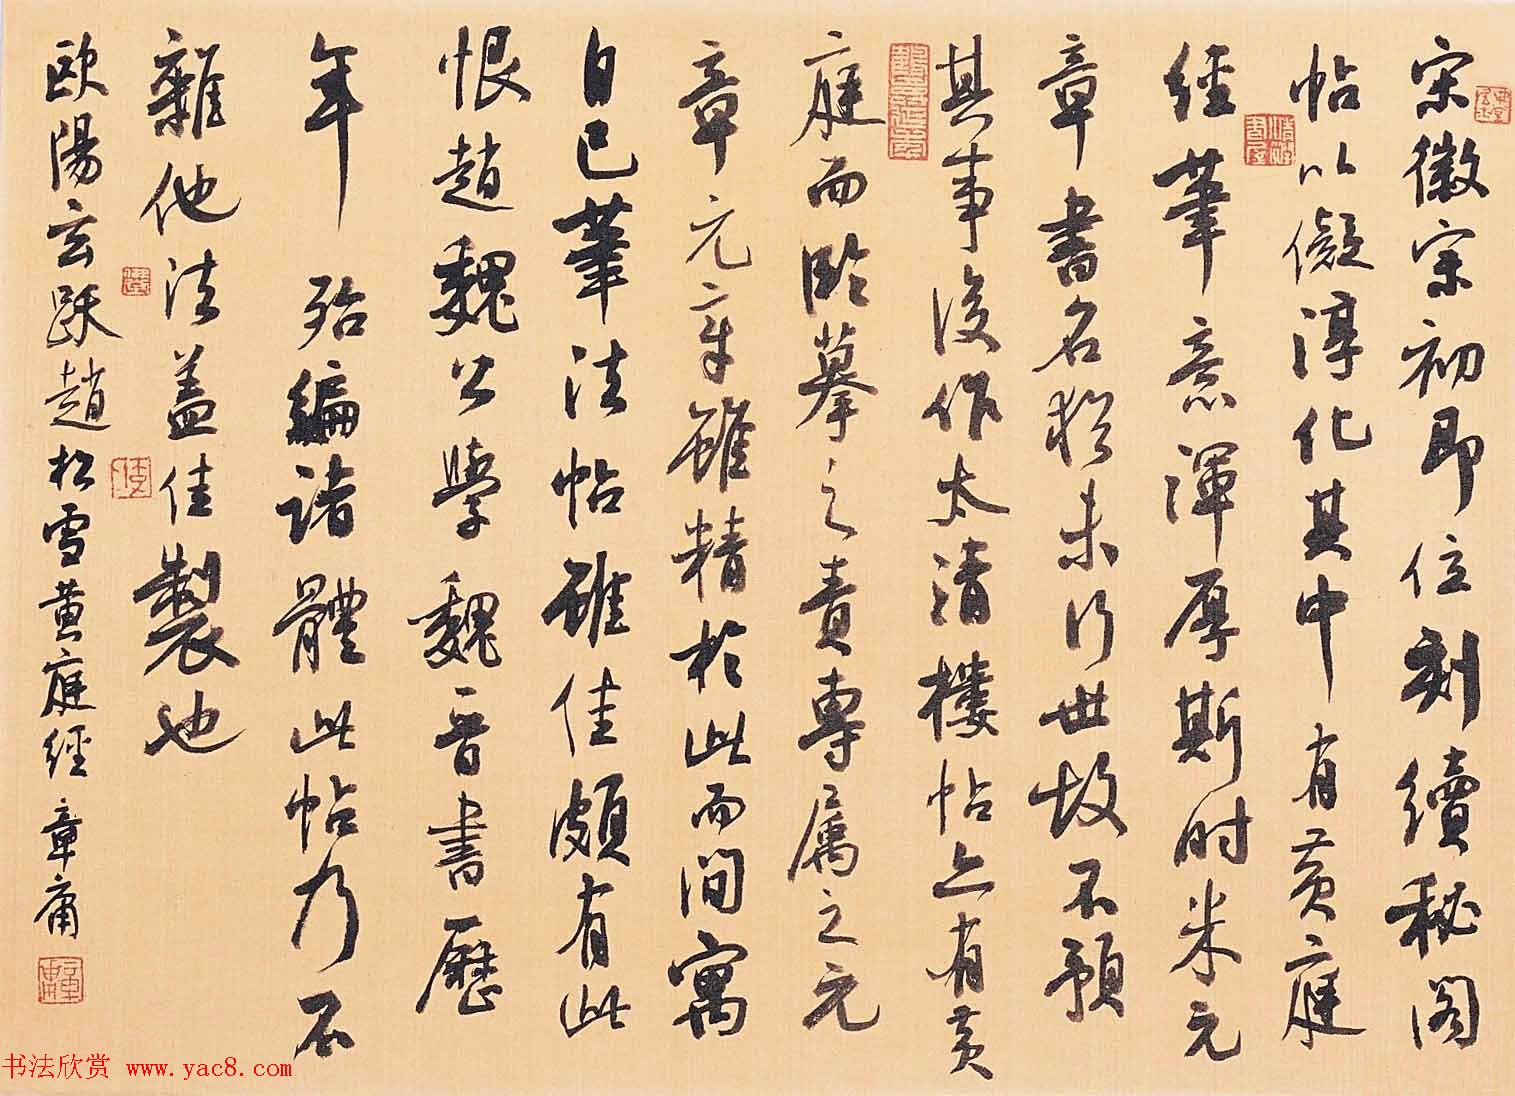 宋徽宗初即位刻續秘閣
帖以儗淳化其中有黄庭
經筆意渾厚斯时米元
章書名猶未行世故不預
其事後作太清樓帖亦有黄
庭而臨摹之責專属之元
章元章雖精於此而间寓
自己筆法帖雖佳頗有此
恨趙魏公學魏晋書歷
年殆編诸體此帖乃不
雜他法盖佳製也
欧陽玄跋趙松雪黄庭經 章庸
书法欣赏 www.yac8.com